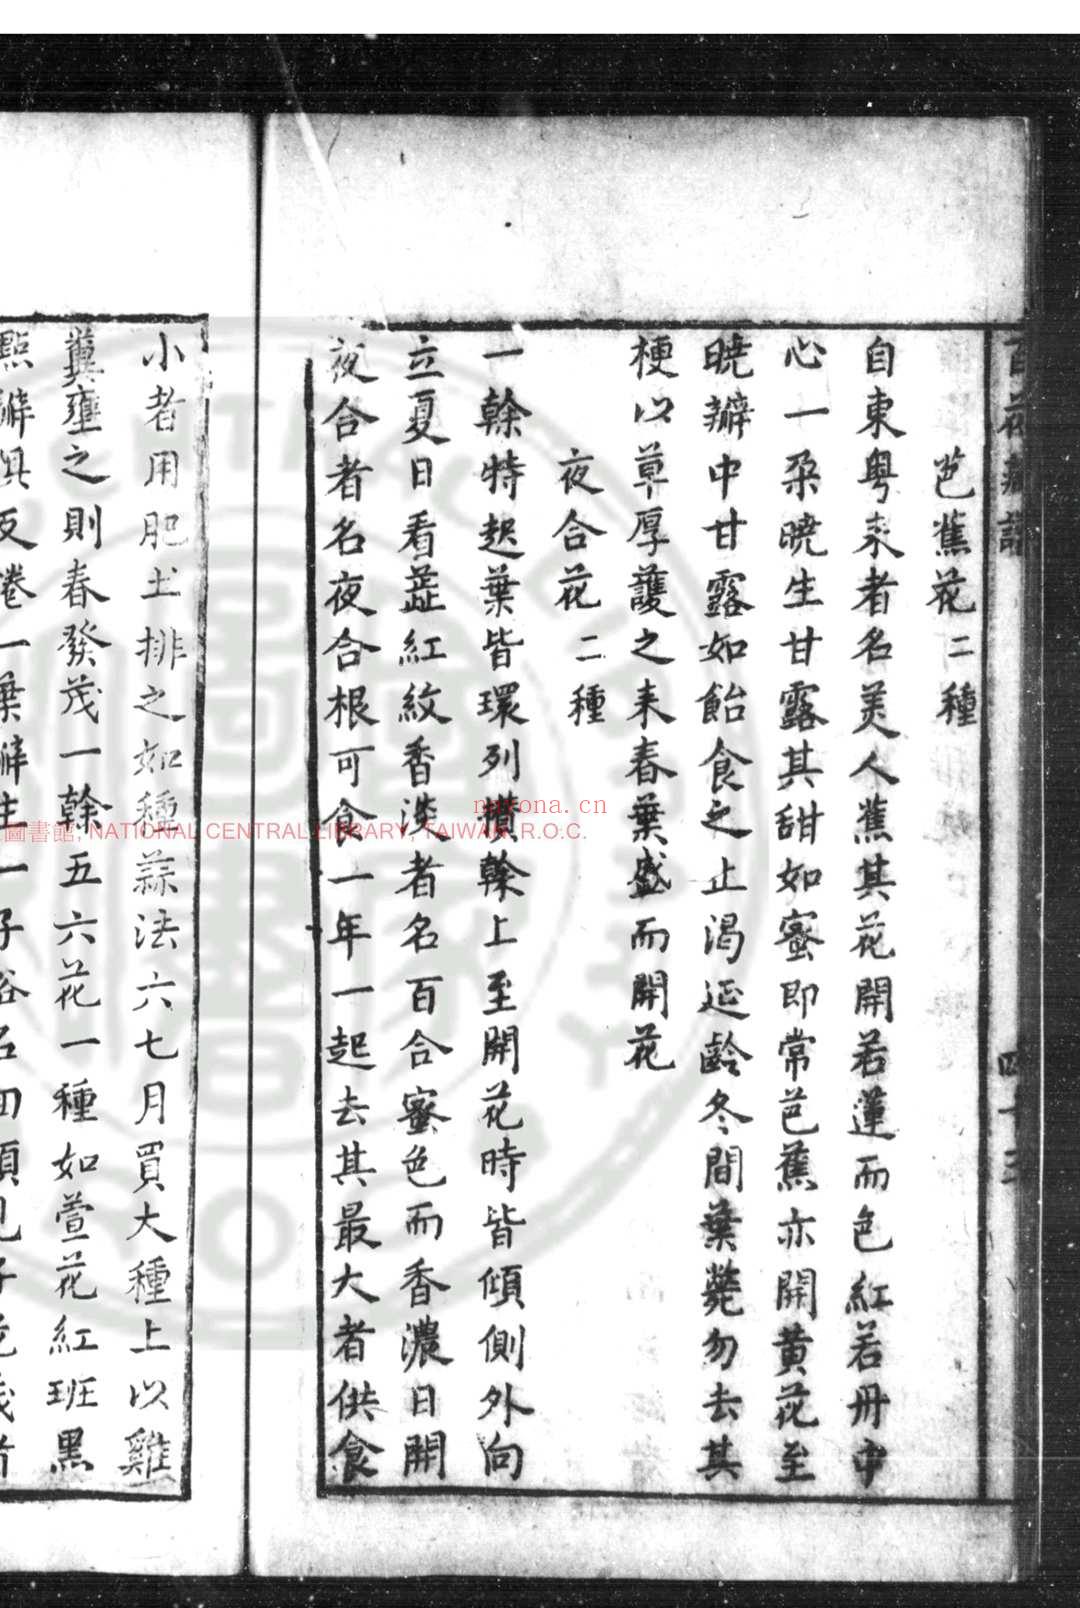 百花藏譜 四十三
芭蕉花二種
自東粤来者名美人蕉其花開若蓮而色紅若丹中
心一朶曉生甘露其甜如蜜即常芭蕉亦開黄花至
曉瓣中甘露如飴食之止渴延齡冬間葉薨勿去其
梗以草厚護之来春葉盛而開花
夜合花二種
一榦特起葉皆環列攅榦上至開花時皆傾側外向
立夏日看蕋紅紋香淡者名百合蜜色而香濃日開
夜合者名夜合根可食一年一起去其最大者供食
小者用肥土排之如種蒜法六七月買大種上以雞
糞壅之則春發茂一榦五六花一種如萱花紅班黒
點瓣俱反捲一葉瓣生一子俗名回頭見子花
圖書館, NATIONAL CENTRAL LIBRARY, TAIWAN, R.O.C.
nayona.cn